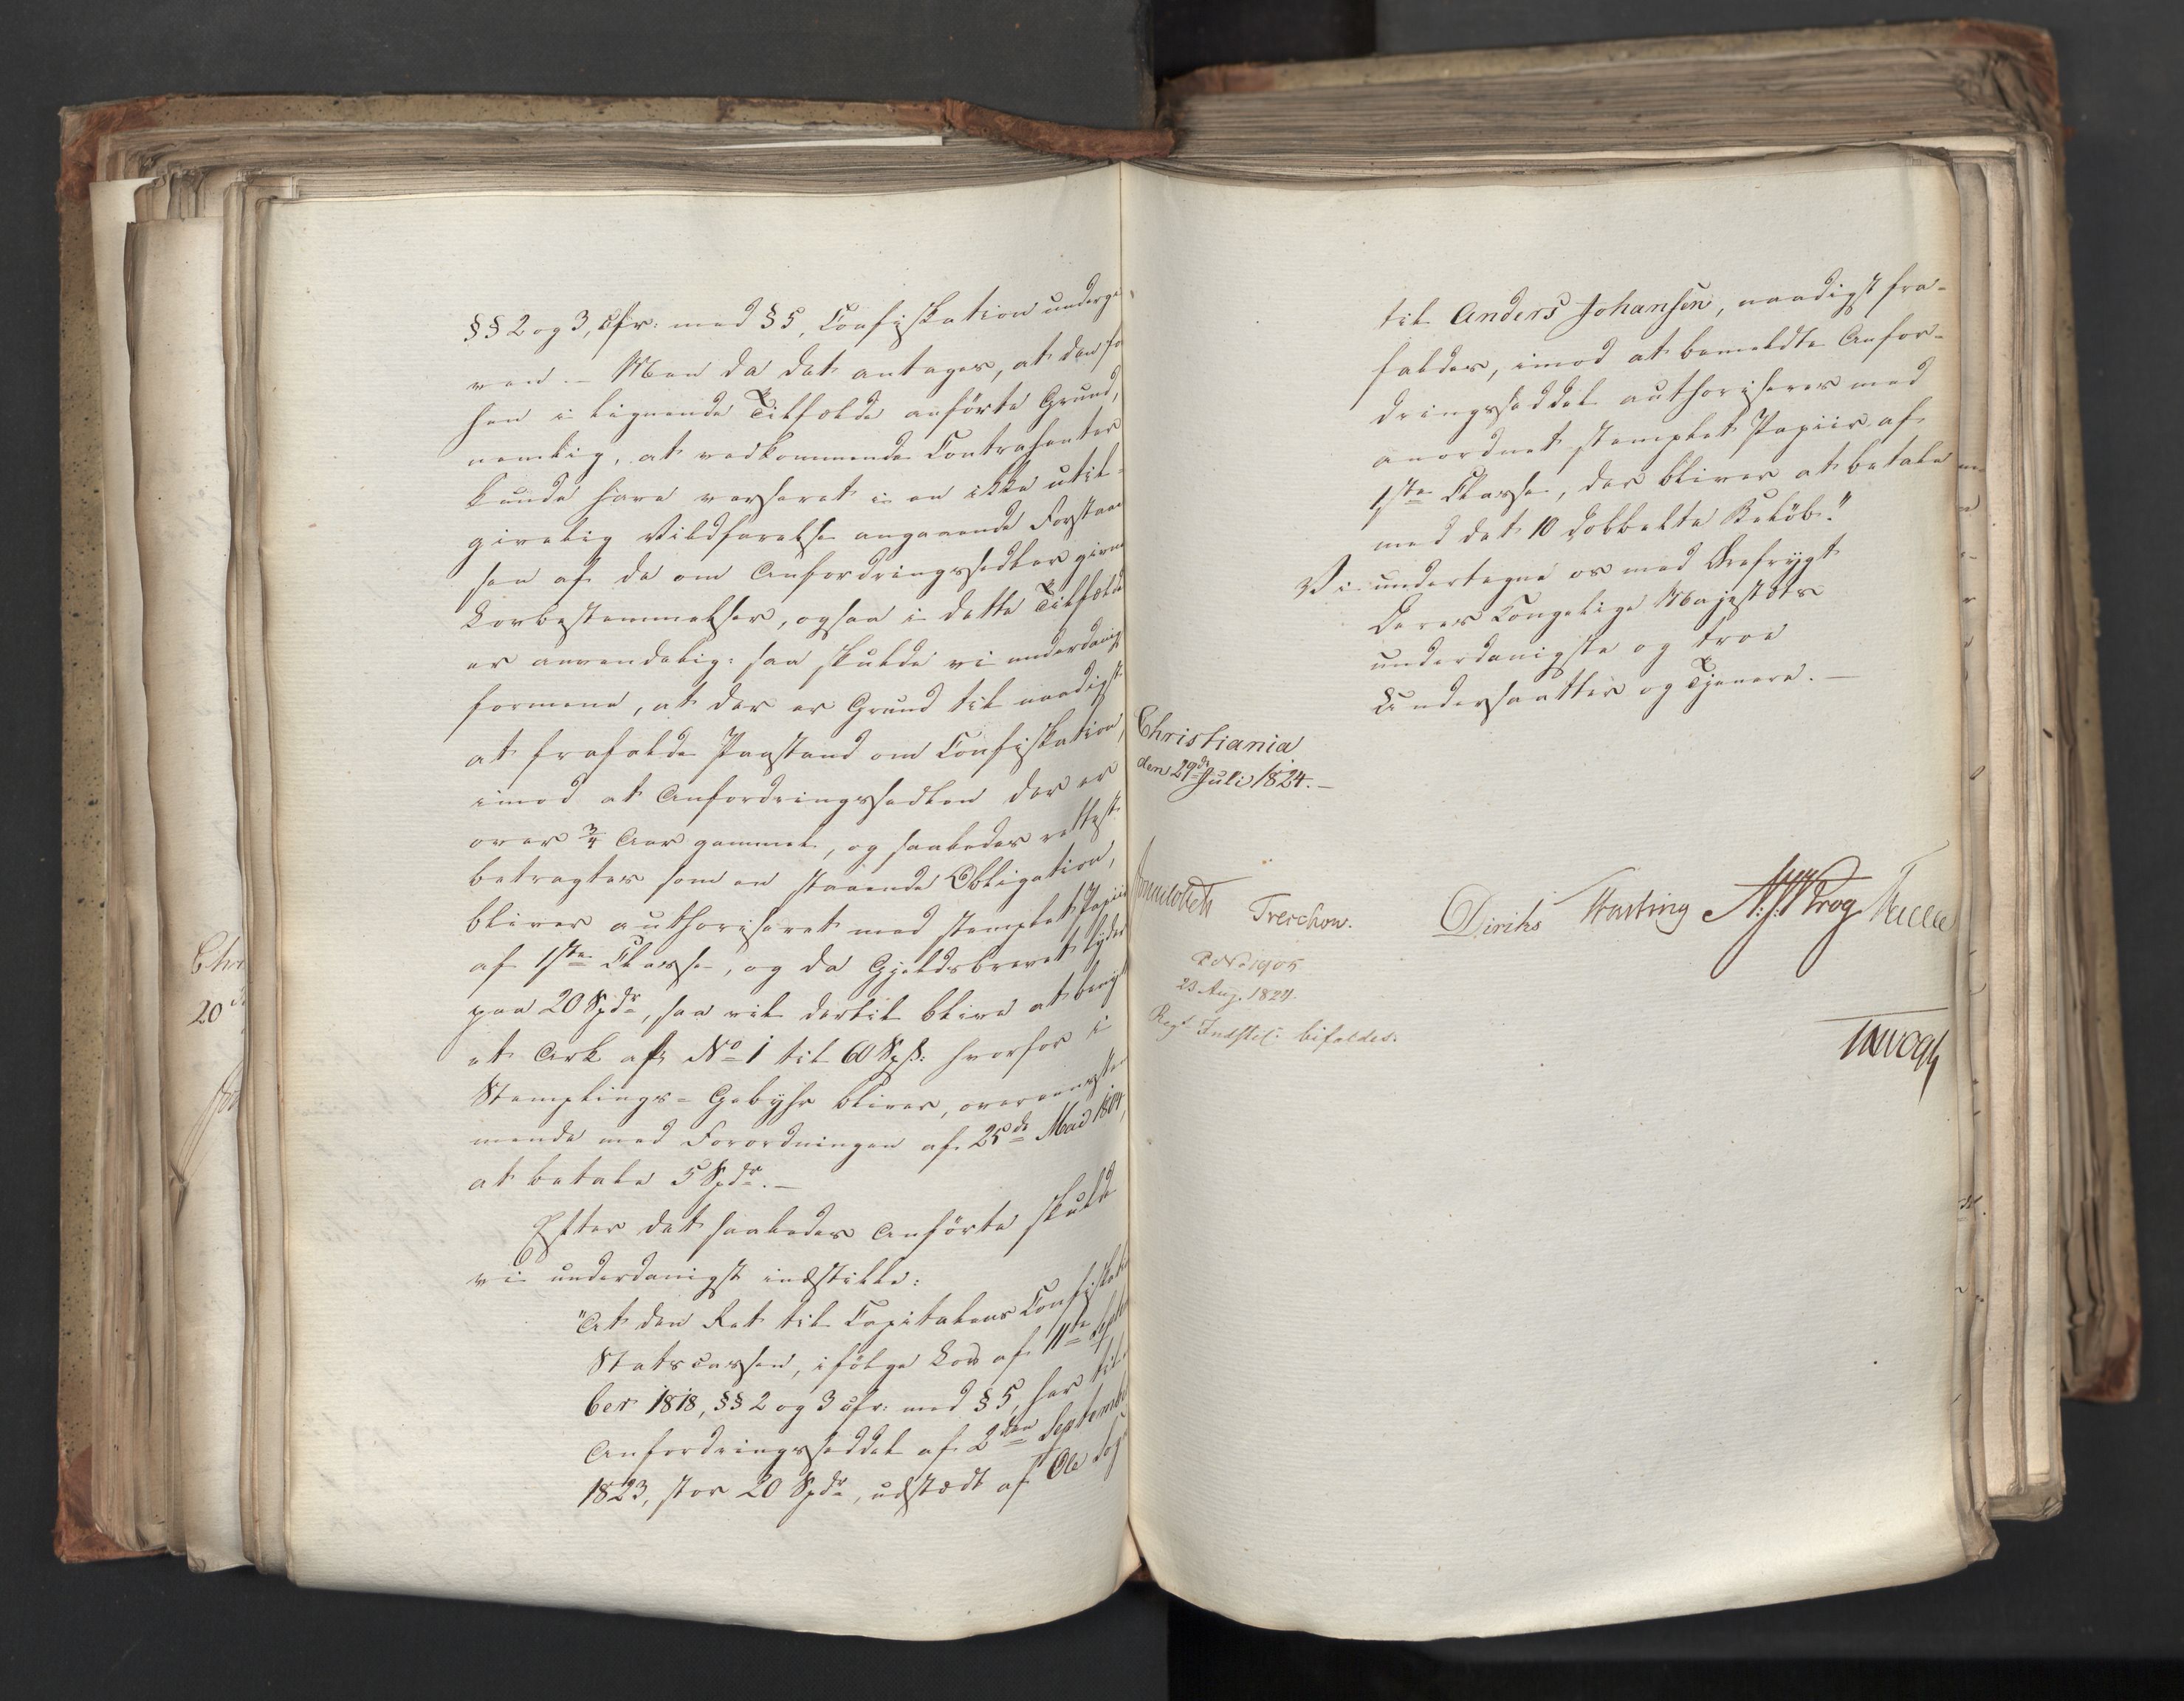 §§ 2 og 3, cfr. med § 5, Confiskation undergi
ven. – Men da det antages, at den for
hen i lignende Tilfælde anførte Grund,
nemlig, at vedkommende Contrahenter
kunde have verseret i en ikke util-
givelig Vildfarelse angaaende Forstaael
sen af de om Anfordringssedler givne
Lovbestemmelser, ogsaa i dette Tilfælde
er anvendelig: saa skulde vi underdanigst
formene, at der er Grund til naadigst
at frafalde Paastand om Confiskation,
imod at Anfordringssedlen der er
over ¾ Aar gammel, og saaledes rettest
betragtes som en staaende Obligation,
bliver authoriseret med stemplet Papiir
af 1ste Classe, og da Gjeldsbrevet lyder
paa 20 Spdr, saa vil dertil blive at brug
et Ark af No 1 til 60 Sps: hvorfor i
Stemplings-Gebyhr bliver, overeensstem
mende med Forordningen af 25de Mai 1804,
at betale 5 Spdr. –
Efter det saaledes Anførte skulde
vi underdanigst indstille:
"At den Ret til Capitalens Confiskation
Statscassen, ifølge Lov af 11te Septem
ber 1818, §§ 2 og 3 cfr. med § 5, har til
Anfordringsseddel af 2den September
1823, stor 20 Spdr, udstædt af Ole
til Anders Johansen, naadigst fra-
faldes, imod at bemeldte Anfor-
dringsseddel authoriseres med
anordnet stemplet Papiir af
1ste Classe, der bliver at betale
med det 10 dobbelte Beløb."
Vi undertegne os med Ærefrygt
Deres Kongelige Majestæts
underdanigste og troe
Undersaatter og Tjenere. –
Christiania
den 29de Juli 1824. –
Sommerhielm
Treschow.
Diriks
Hasting
Krog
23 Aug. 1824.
Regs Indstil: bifaldes.
Chr
20